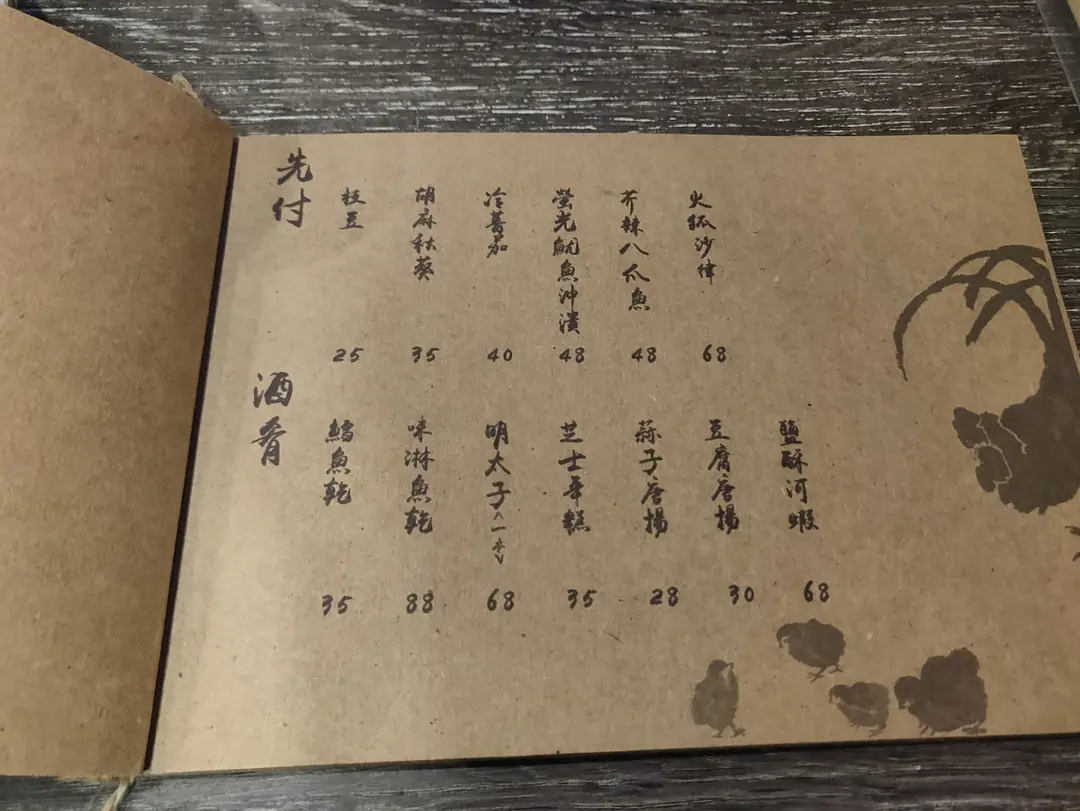 先付
枝豆
25
胡麻秋葵
35
冷蕃茄
40
螢光魷魚沖漬
48
芥辣八爪魚
48
火狐沙律
68
酒肴
鱈魚乾
35
味淋魚乾
88
明太子(一本)
68
芝士年糕
35
蒜子唐揚
28
豆腐唐揚
30
鹽酥河蝦
68